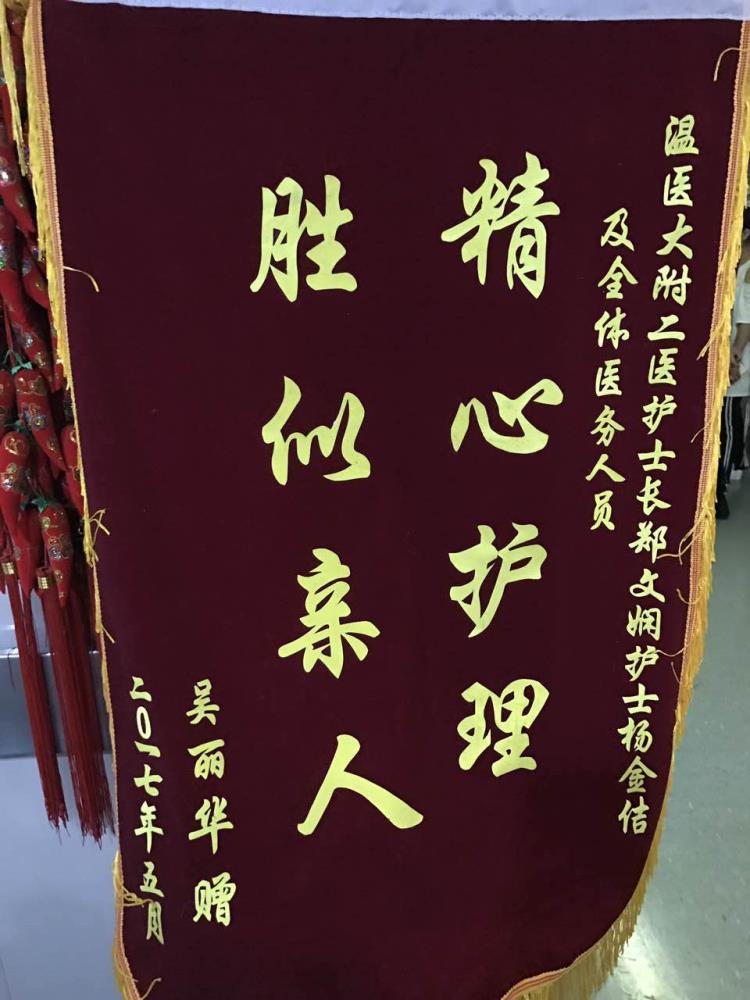 温医大附二医护士长郑文娴护士杨金佶
及全体医务人员
精心护理
胜似亲人
吴丽华赠
二〇一七年五月